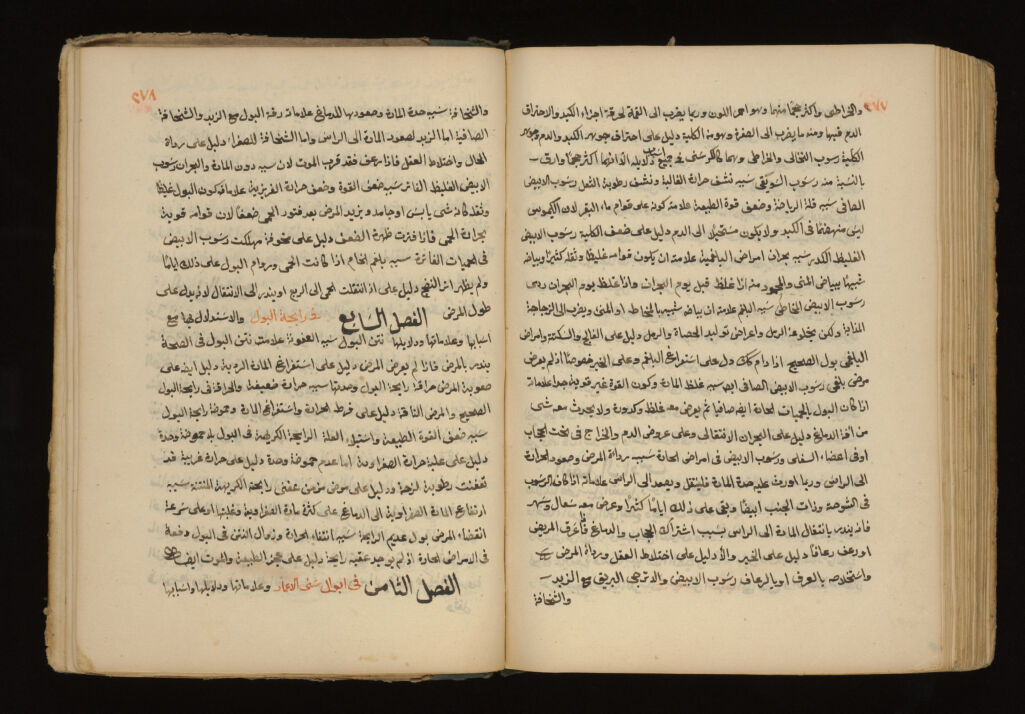 ٢٧٧
والخراطى واكثر حجمًا منهما وهو احمر اللون وربما يضرب الى القمة لحرقة اجزاء الكبد والاحتراق
الدم فيها ومنه ما يضرب الى الصفرة وهو منه الكلية دليل على احتراق جوهر الكبد والدم وجوهر
الكلية رسوب النخالى والخراطى وهما كالكرسنى فى جميع دلايله الا انهما اكثر حجمًا وارق
بالنسبة منه رسوب السويقى سببه نشف حرارة الغالبة ونشف رطوبة الثفل رسوب الابيض
الصافى سببه قلة الرياضة وضعف قوة الطبيعة علامته كونه على قوام ماء البقر لان الكيموس
ليس منهضمًا فى الكبد ولا يكون مستحيلا الى الدم دليل على ضعف الكلية رسوب الابيض
الغليظ الكدر سببه بحران امراض البلغمية علامته ان يكون قوامه غليظًا وثقله كثيرًا وبياضه
شبيهًا ببياض المنى والجمود منه اذا غلظ قبل يوم البحران واذا غلظ يوم البحران ردى
رسوب الابيض المخاطى سببه البلغم علامته ان بياضه شبيه بالمخاط او المنى ويضرب الى الزجاجة
المذابة ولكن يخلو عنه الرمل واعراض توليد الحصاة والرمل دليل على الفالج والسكتة وامراض
البلغمى بول الصحيح اذا دام كك دل على استفراغ البلغم وعلى الخير خصوصًا اذا لم يعرض
مرض بلغمى رسوب الابيض الصافى ايضا سببه غلظ المادة وكون القوة غير قوية جدا علامات
اذا كان البول بالحميات الحادة ايضا صافيا ثم يعرض معه غلظ وكدورة ولا يحدث معه شى
من افة الدماغ دليل على البحران الانتقالى وعلى عروض الدم والخراج فى تحت الحجاب
اوفى اعضاء السفلى ورسوب الابيض فى امراض الحادة سببه رداة المرض وصعود الحرارة
الى الراس وربما اورث عليه حدة المادة فلينتقل ويصعد الى الراس علاماته اذا كان الرسوب
فى الشوصة وذات الجنب ابيضًا وبقى على ذلك ايامًا كثيرا وعرض معه سعال وسهر
فاذ يندر بانتقال المادة الى الراس بسبب اشتراك الحجاب والدماغ فاذا عرق المريض
اورعف رعافًا دليل على الخير والا دليل على اختلاط العقل ورداة المرض
واستخلاصه بالعرق او بالرعاف رسوب الابيض والاترجى البريق مع الزبد
والثخافة
٢٧٨
والثخافة سببه حدة المادة وصعودها للدماغ علاماته رقة البول مع الزبد والثخافة
الصافية اما الزبد لصعود المادة الى الراس واما الثخافة للصفرا دليل على رداة
الحال واختلاط العقل فاذا رعف فقد قرب الموت لان سببه دون المادة والبحران رسوب
الابيض الغليظ الفاتر سببه ضعف القوة وضعف حرارة الغريزية علامته فيكون البول غليظًا
وثقله كانه شى يابس او جامد ويزيد المرض بعد فتور الحمى ضعفًا لان قوامه قوية
بحرارة الحمى فاذا فترت ظهرة الضعف دليل على مخوفة مهلكت رسوب الابيض
فى الحميات الفاترة سببه بلغم الخام اذا كانت الحمى ودوام البول على ذلك ايامًا
ولم يظهر اثر النضج دليل على اذا انتقلت الحمى الى الربع او يندر الى الانتقال لانه يدل على
طول المرض الفصل السابع فى رايحة البول والاستدلال بها مع
اسبابها وعلاماتها ودلايلها نتن البول سببه العفونة علامت نتن البول فى الصحة
يندر بالمرض فاذا لم يعرض المرض دليل على استفراغ المادة الردية دليل ايضا على
صعوبة المرض حرافة رايحة البول وحدتها سببه حرارة ضعيفة والحرافة فى رايحة البول
الصحيح والمرض الناقة دليل على فرط الحرارة واستفراغ المادة وحموضة رايحة البول
سببه ضعف القوة الطبيعة واستيلاء العلة الرايحة الكريهة فى البول بلا حموضة وحدة
دليل على غلبة حرارة الصفراوية اما عدم حموضة وحدة دليل على حرارة غريبة قد
تعفنت رطوبة لزجة ودليل على مرض مزمن عفنى رايحة الكريهة المنتنة سببه
ارتفاع المادة الصفراوية الى الدماغ على كثرة مادة الصفراوية وغلبتها او على سرعة
انقضاء المرض بول عديم الرايحة سببه انتفاء الحرارة وزوال النتن فى البول دفعة
فى الامراض الحادة اذ لم يوجد عقيبه رايحة دليل على عجز الطبيعة والموت ايضا
الفصل الثامن فى ابوال سنى الاعمار وعلاماتها ودلايلها واسبابها